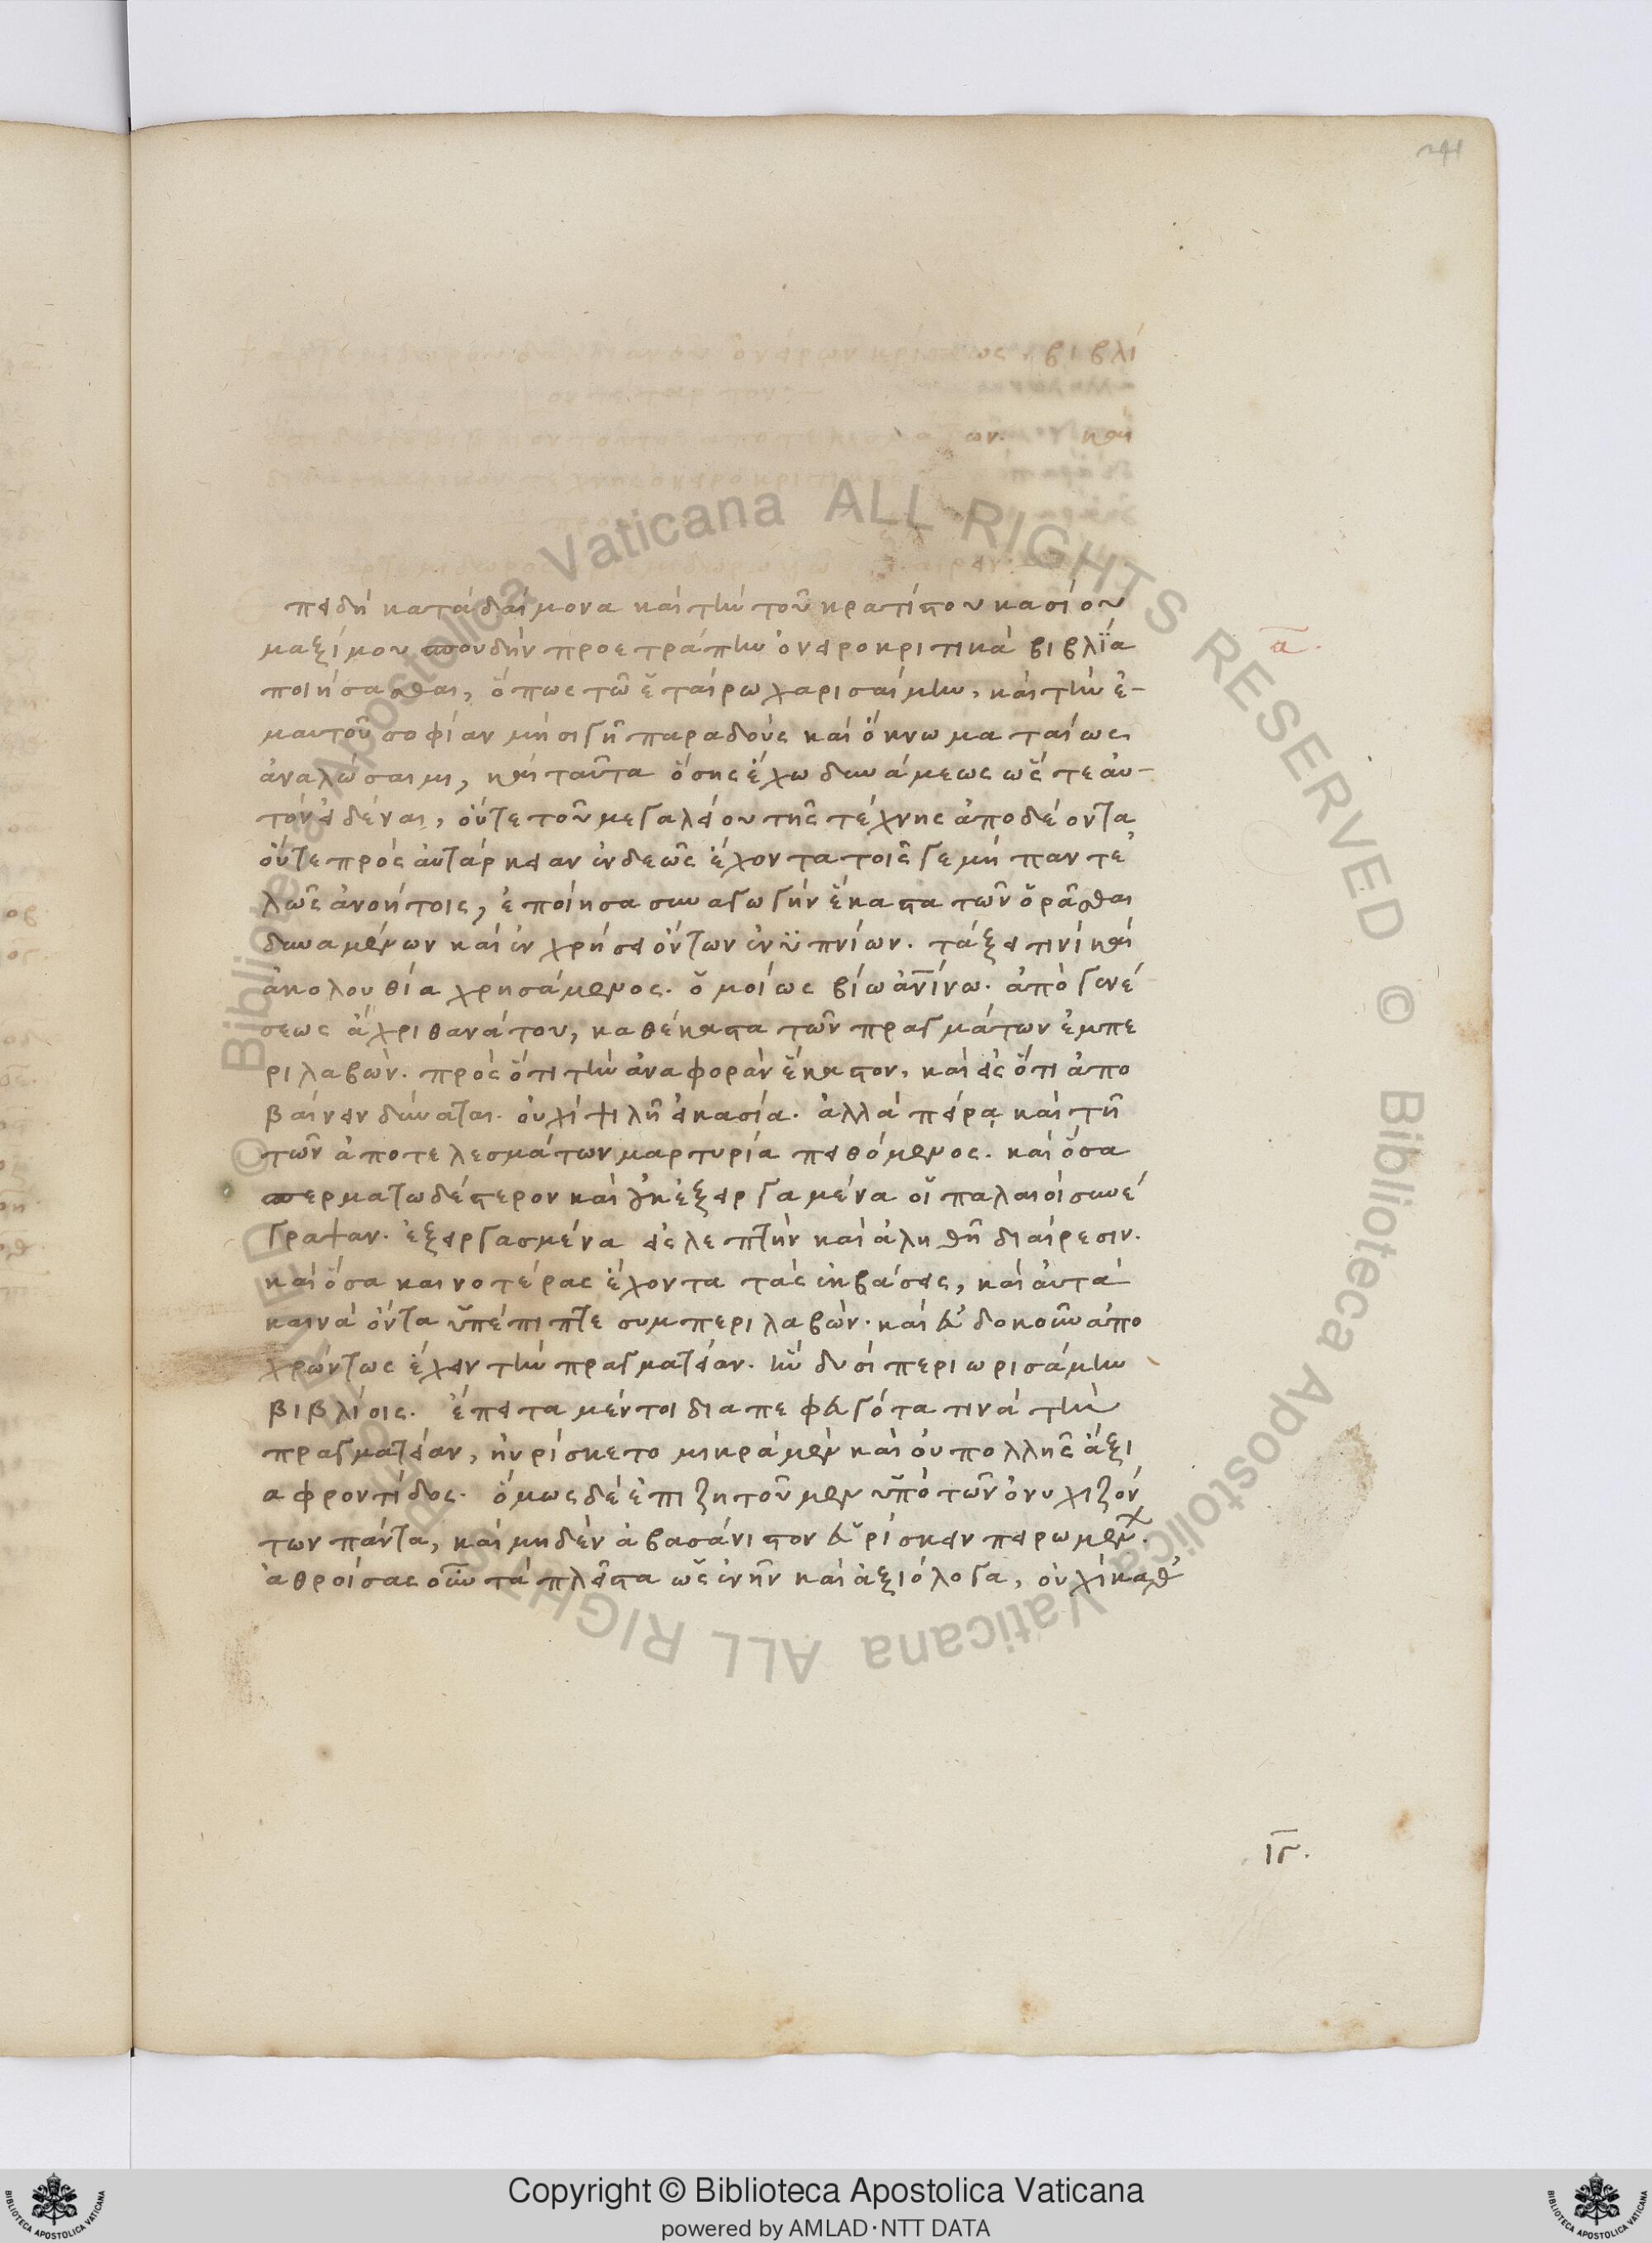 βιβλί
ονειροκριτι
πειδὴ κατὰ δαίμονα καὶ τὴν τοῦ κρατίστου κασίου
μαξίμου σπουδὴν προετράπην ὀνειροκριτικὰ βιβλία
ποιήσασθαι, ὅπως τῶ ἑταίρω χαρισαίμην, καὶ τὴν ἐ-
μαυτοῦ σοφίαν μὴ σιγῆ παραδοὺς καὶ ὄκνω ματαίως
ἀναλώσαιμι, καὶ ταῦτα ὅσης ἔχω δυνάμεως ὥστε αὐ-
τὸν εἰδέναι, οὔτε τοῦ μεγαλείου τῆς τέχνης ἀποδέοντα
οὔτε πρὸς αὐτάρκειαν ἐνδεῶς ἔχοντα τοῖς γε μὴ παντε
λῶς ἀνοήτοις, ἐποίησα συναγωγὴν ἕκαστα τῶν ὁρᾶσθαι
δυναμένων καὶ ἐν χρήσει ὄντων ἐνϋπνίων. τάξει τινὶ καὶ
ἀκολουθία χρησάμενος. ὁμοίως βίω ἀνίνω. ἀπὸ γενέ
σεως ἄχρι θανάτου, καθέκαστα τῶν πραγμάτων ἐμπε
ριλαβών. πρὸς ὅτι τὴν ἀναφορὰν ἕκαστον, καὶ εἰς ὅτι ἀπο
βαίνειν δύναται. οὐχὶ ψιλῆ εἰκασία. ἀλλὰ πείρα καὶ τῆ
τῶν ἀποτελεσμάτων μαρτυρία πειθόμενος. καὶ ὅσα
σπερματωδέστερον καὶ οὐκ ἐξειργαμένα οἱ παλαιοὶ συνέ
γραψαν. ἐξειργασμένα εἰς λεπτὴν καὶ ἀληθῆ διαίρεσιν.
καὶ ὅσα καινοτέρας ἔχοντα τὰς ἐκβάσεις, καὶ αὐτὰ
καινὰ ὄντα ὑπέπιπτε συμπεριλαβών. καὶ εὐδοκοῦν ἀπο
χρώντως ἔχειν τὴν πραγματείαν. ἐν δυσὶ περιωρισάμην
βιβλίοις. ἔπειτα μέντοι διαπεφευγότα τινὰ τὴν
πραγματείαν, ηὑρίσκετο μικρὰ μὲν καὶ οὐ πολλῆς ἄξι
α φροντίδος. ὅμως δὲ ἐπιζητοῦμεν ὑπὸ τῶν ὀνυχιζόν
των πάντα, καὶ μηδὲν ἀβασάνιστον εὑρίσκειν πειρωμένχ.
ἀθροίσας οὖν τὰ πλεῖστα ὡς ἐνῆν καὶ ἀξιόλογα, οὐχὶ καθ
α.
ιγ.
Copyright © Biblioteca Apostolica Vaticana
powered by AMLAD·NTT DATA